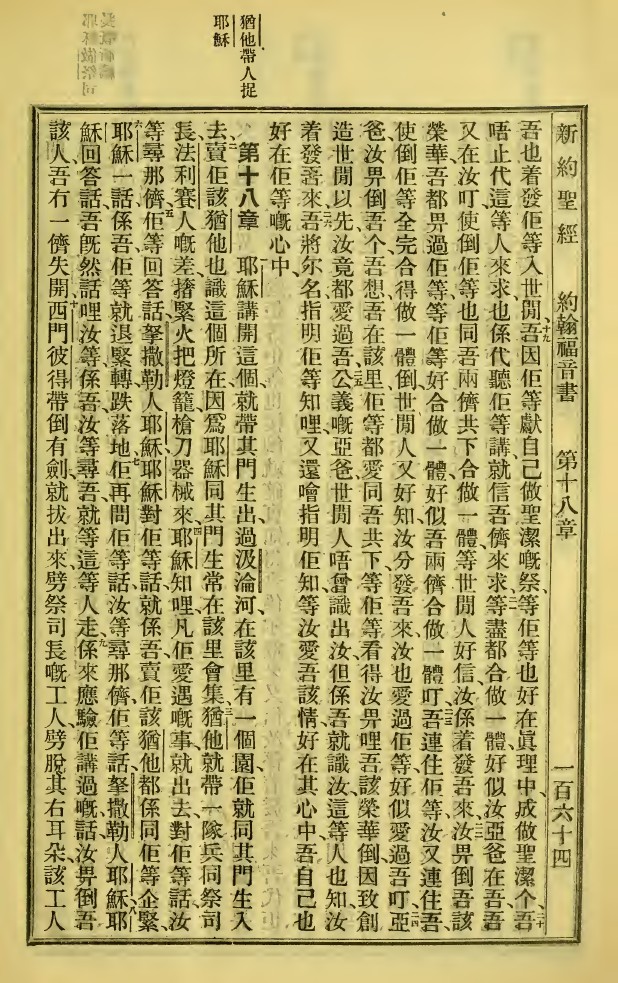 新約聖經 約翰福音書 第十八章 一百六十四
吾也着發佢等入世間、十九吾因佢等獻自己做聖潔嘅祭、等佢等也好在眞理中、成做聖潔个、二十吾
唔止代這等人來求、也係代聽佢等講就信吾儕來求、二一等盡都合做一體、好似汝亞爸在吾、吾
又在汝叮、使倒佢等也同吾兩儕共下合做一體、等世間人好信汝係着發吾來、二二汝畀倒吾該
榮華、吾都畀過佢等、等佢等好合做一體、好似吾兩儕合做一體叮、二三吾連住佢等、汝又連住吾、
使倒佢等全完合得做一體、倒世間人又好知汝分發吾來、汝也愛過佢等、好似愛過吾叮、二四亞
爸、汝畀倒吾个、吾想吾在該里、佢等都愛同吾共下、等佢等看得汝畀哩吾該榮華、倒因致創
造世間以先、汝竟都愛過吾、二五公義嘅亞爸、世間人唔曾識出汝、但係吾就識汝、這等人也知汝
着發吾來、二六吾將尔名指明佢等知哩、又還噲指明佢知、等汝愛吾該情、好在其心中、吾自己也
好在佢等嘅心中、
第十八章 耶穌講開這個、就帶其門生出過汲淪河、在該里有一個園、佢就同其門生入
去、二賣佢該猶他也識這個所在、因爲耶穌同其門生常在該里會集、三猶他就帶一隊兵、同祭司
長、法利賽人嘅差、搇緊火把燈籠槍刀器械來、四耶穌知哩凡佢愛遇嘅事、就出去對佢等話、汝
等尋那儕、五佢等回答話、拏撒勒人耶穌、耶穌對佢等話、就係吾、賣佢該猶他、都係同佢等企緊、
六耶穌一話係吾、佢等就退緊轉、跌落地、七佢再問佢等話、汝等尋那儕、佢等話、拏撒勒人耶穌、八耶
穌回答話、吾旣然話哩汝等、係吾、汝等尋吾、就等這等人走、九係來應驗佢講過嘅話、汝畀倒吾
該人、吾冇一儕失開、十西門彼得帶倒有劍、就拔出來、劈祭司長嘅工人、劈脫其右耳朵、該工人
猶他帶人捉
耶穌